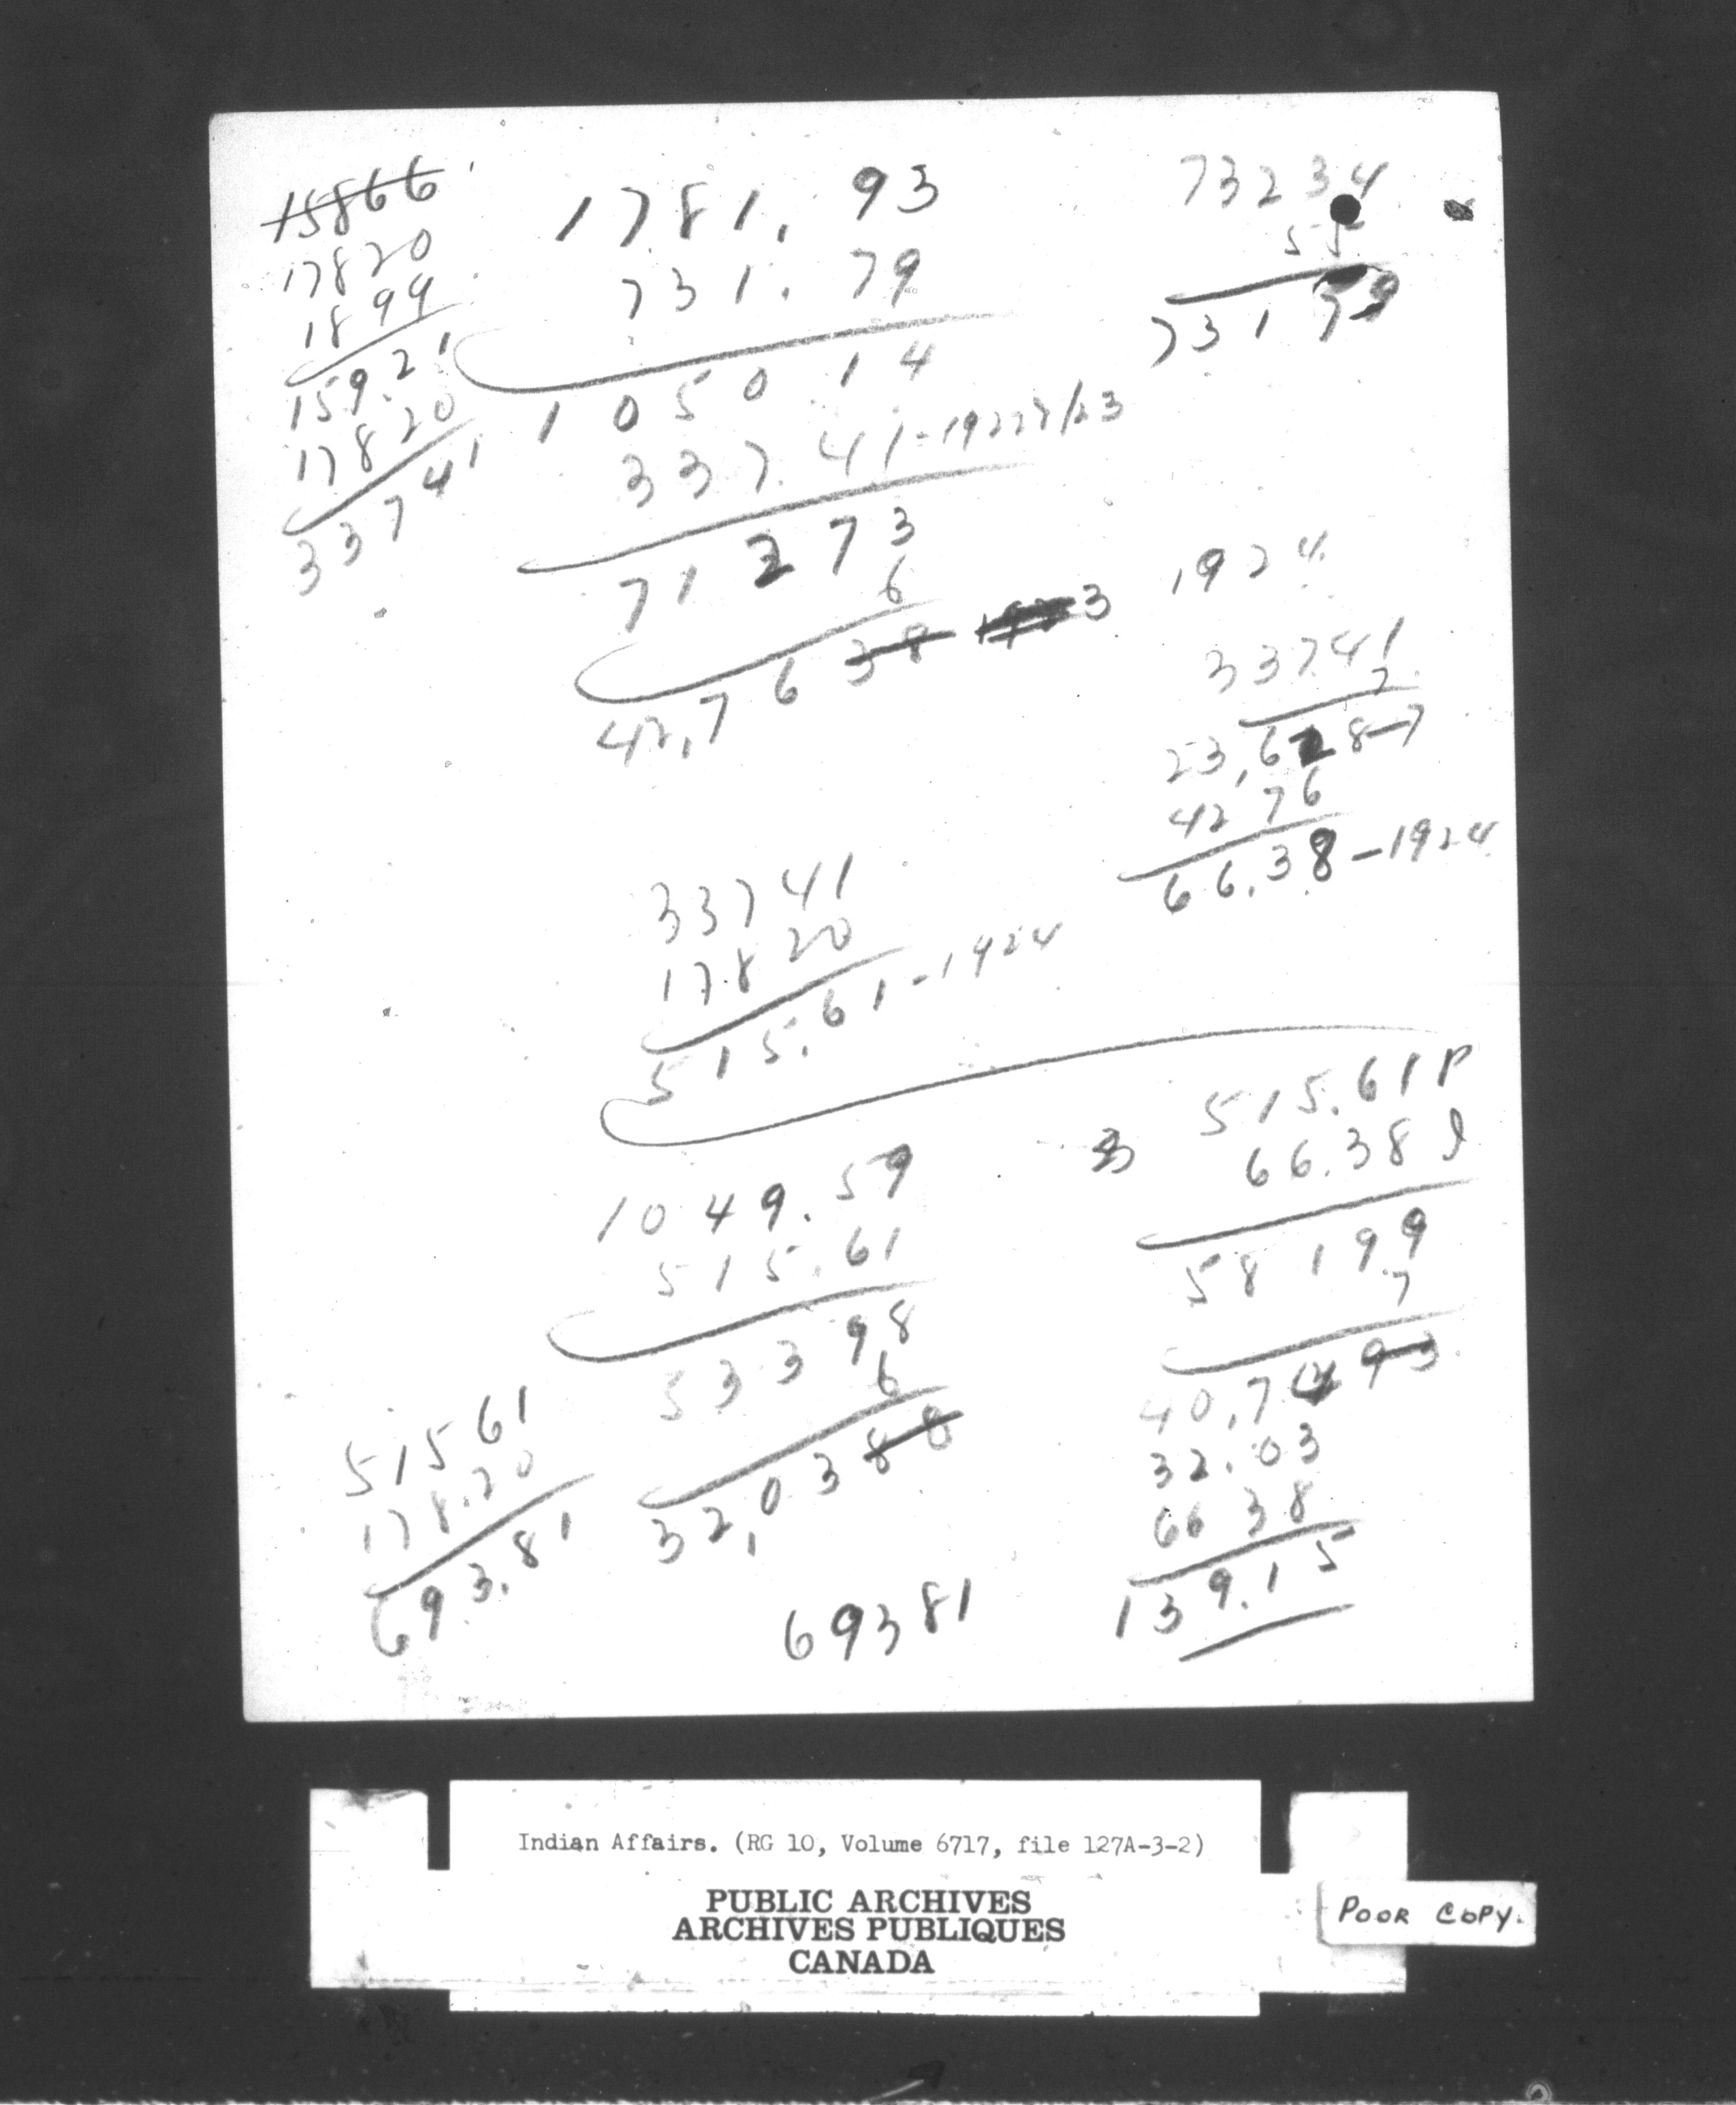 15866
17820
1899
159.21
17820
33741
1781.93
731.79
105014
337.41-1922 & /23
71273
6
42,7638
3
73234
55
73179
1924
33741
7
23,6287
4276
66.38-1924
33741
17820
515.61-1924
1049.59
515.61
53398
6
32,0388
515.61 P
66.38 I
58199
7
40,7 93
32.03
6638
139.15
51561
178.20
693.81
69381
Indian Affairs. (RG 10, Volume 6717, file 127A-3-2)
PUBLIC ARCHIVES
ARCHIVES PUBLIQUES
CANADA
POOR COPY.